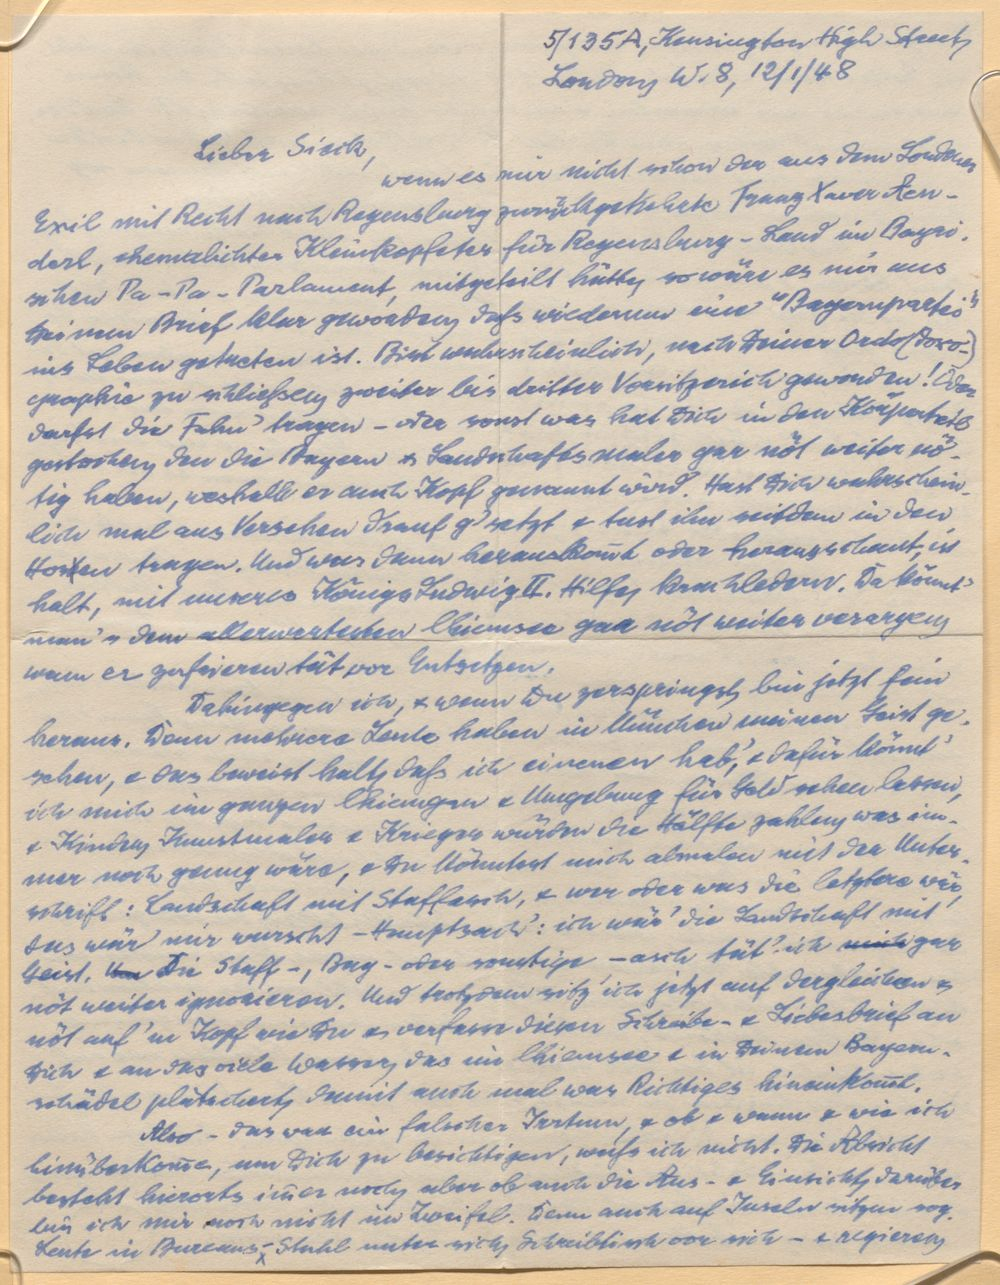 5/135A, Kensington High Street,
London W. 8, 12/1/48
Lieber Sieck,
wenn es mir nicht schon der aus dem Londoner
Exil mit Recht nach Regensburg zurückgekehrte Franz Xaver Aen-
derl, ehemalichter Kleinkopfeter für Regensburg-Land im Bayri-
schen Pa-Pa-Parlament, mitgeteilt hätte, so wäre es mir aus
Deinem Brief klar geworden, dass wiederum eine "Bayernpartei"
ins Leben getreten ist. Bist wahrscheinlich, nach Deiner Ordo(doxo-)
graphie zu schließen, zweiter bis dritter Vorsitzerich geworden! Oder
darfst die Fahn' tragen - oder sonst was hat Dich in den Körperteil
gestochen, den die Bayern & Landschaftsmaler gar nöt weiter nö-
tig haben, weshalb er auch Kopf genannt wird. Hast Dich wahrschein-
lich mal aus Versehen drauf g'setzt & tust ihn seitdem in den
Hosen tragen. Und was dann herauskom̄t oder herausschaut, ist
halt, mit unseres Königs Ludwig II. Hilfe, krachledern. Da könnt'
man's dem allerwertesten Chiemsee gar nöt weiter verargen,
wenn er zufrieren tät vor Entsetzen.
Dahingegen ich, & wenn Du zerspringst, bin jetzt fein
heraus. Denn mehrere Leute haben in München meinen Geist ge-
sehen, & das beweist halt, daß ich einenen hab', & dafür könnt'
ich mich im ganzen Chiemgau & Umgebung für Geld sehen lassen,
& Kinder, Kunstmaler & Krieger würden die Hälfte zahlen, was im-
mer noch genug wäre, & Du könntest mich abmalen mit der Unter-
schrift: Landschaft mit Staffasch, & wer oder was die letztere wär,
das wär' mir wurscht - Hauptsach': ich wär' die Landschaft mit
Geist. Die Staff-, Bag- oder sonstige -asch tät' ich gar
nöt weiter ignorieren. Und trotzdem sitz' ich jetzt auf dergleichen &
nöt auf 'm Kopf wie Du & verfasse diesen Schreibe- & Liebesbrief an
Dich & an das viele Wasser, das im Chiemsee & in Deinem Bayern-
schädel plätschert, damit auch mal was Richtiges hineinkom̄t.
Also - das war ein falscher Irrtum, & ob & wann & wie ich
hinüberkom̄e, um Dich zu besichtigen, weiß ich nicht. Die Absicht
besteht hierorts im̄er noch, aber ob auch die Aus- & Einsicht, darüber
bin ich mir noch nicht im Zweifel. Denn auch auf Inseln sitzen sog.
Leute in Bureaus, Stuhl unter sich, Schreibtisch vor sich - & regieren,